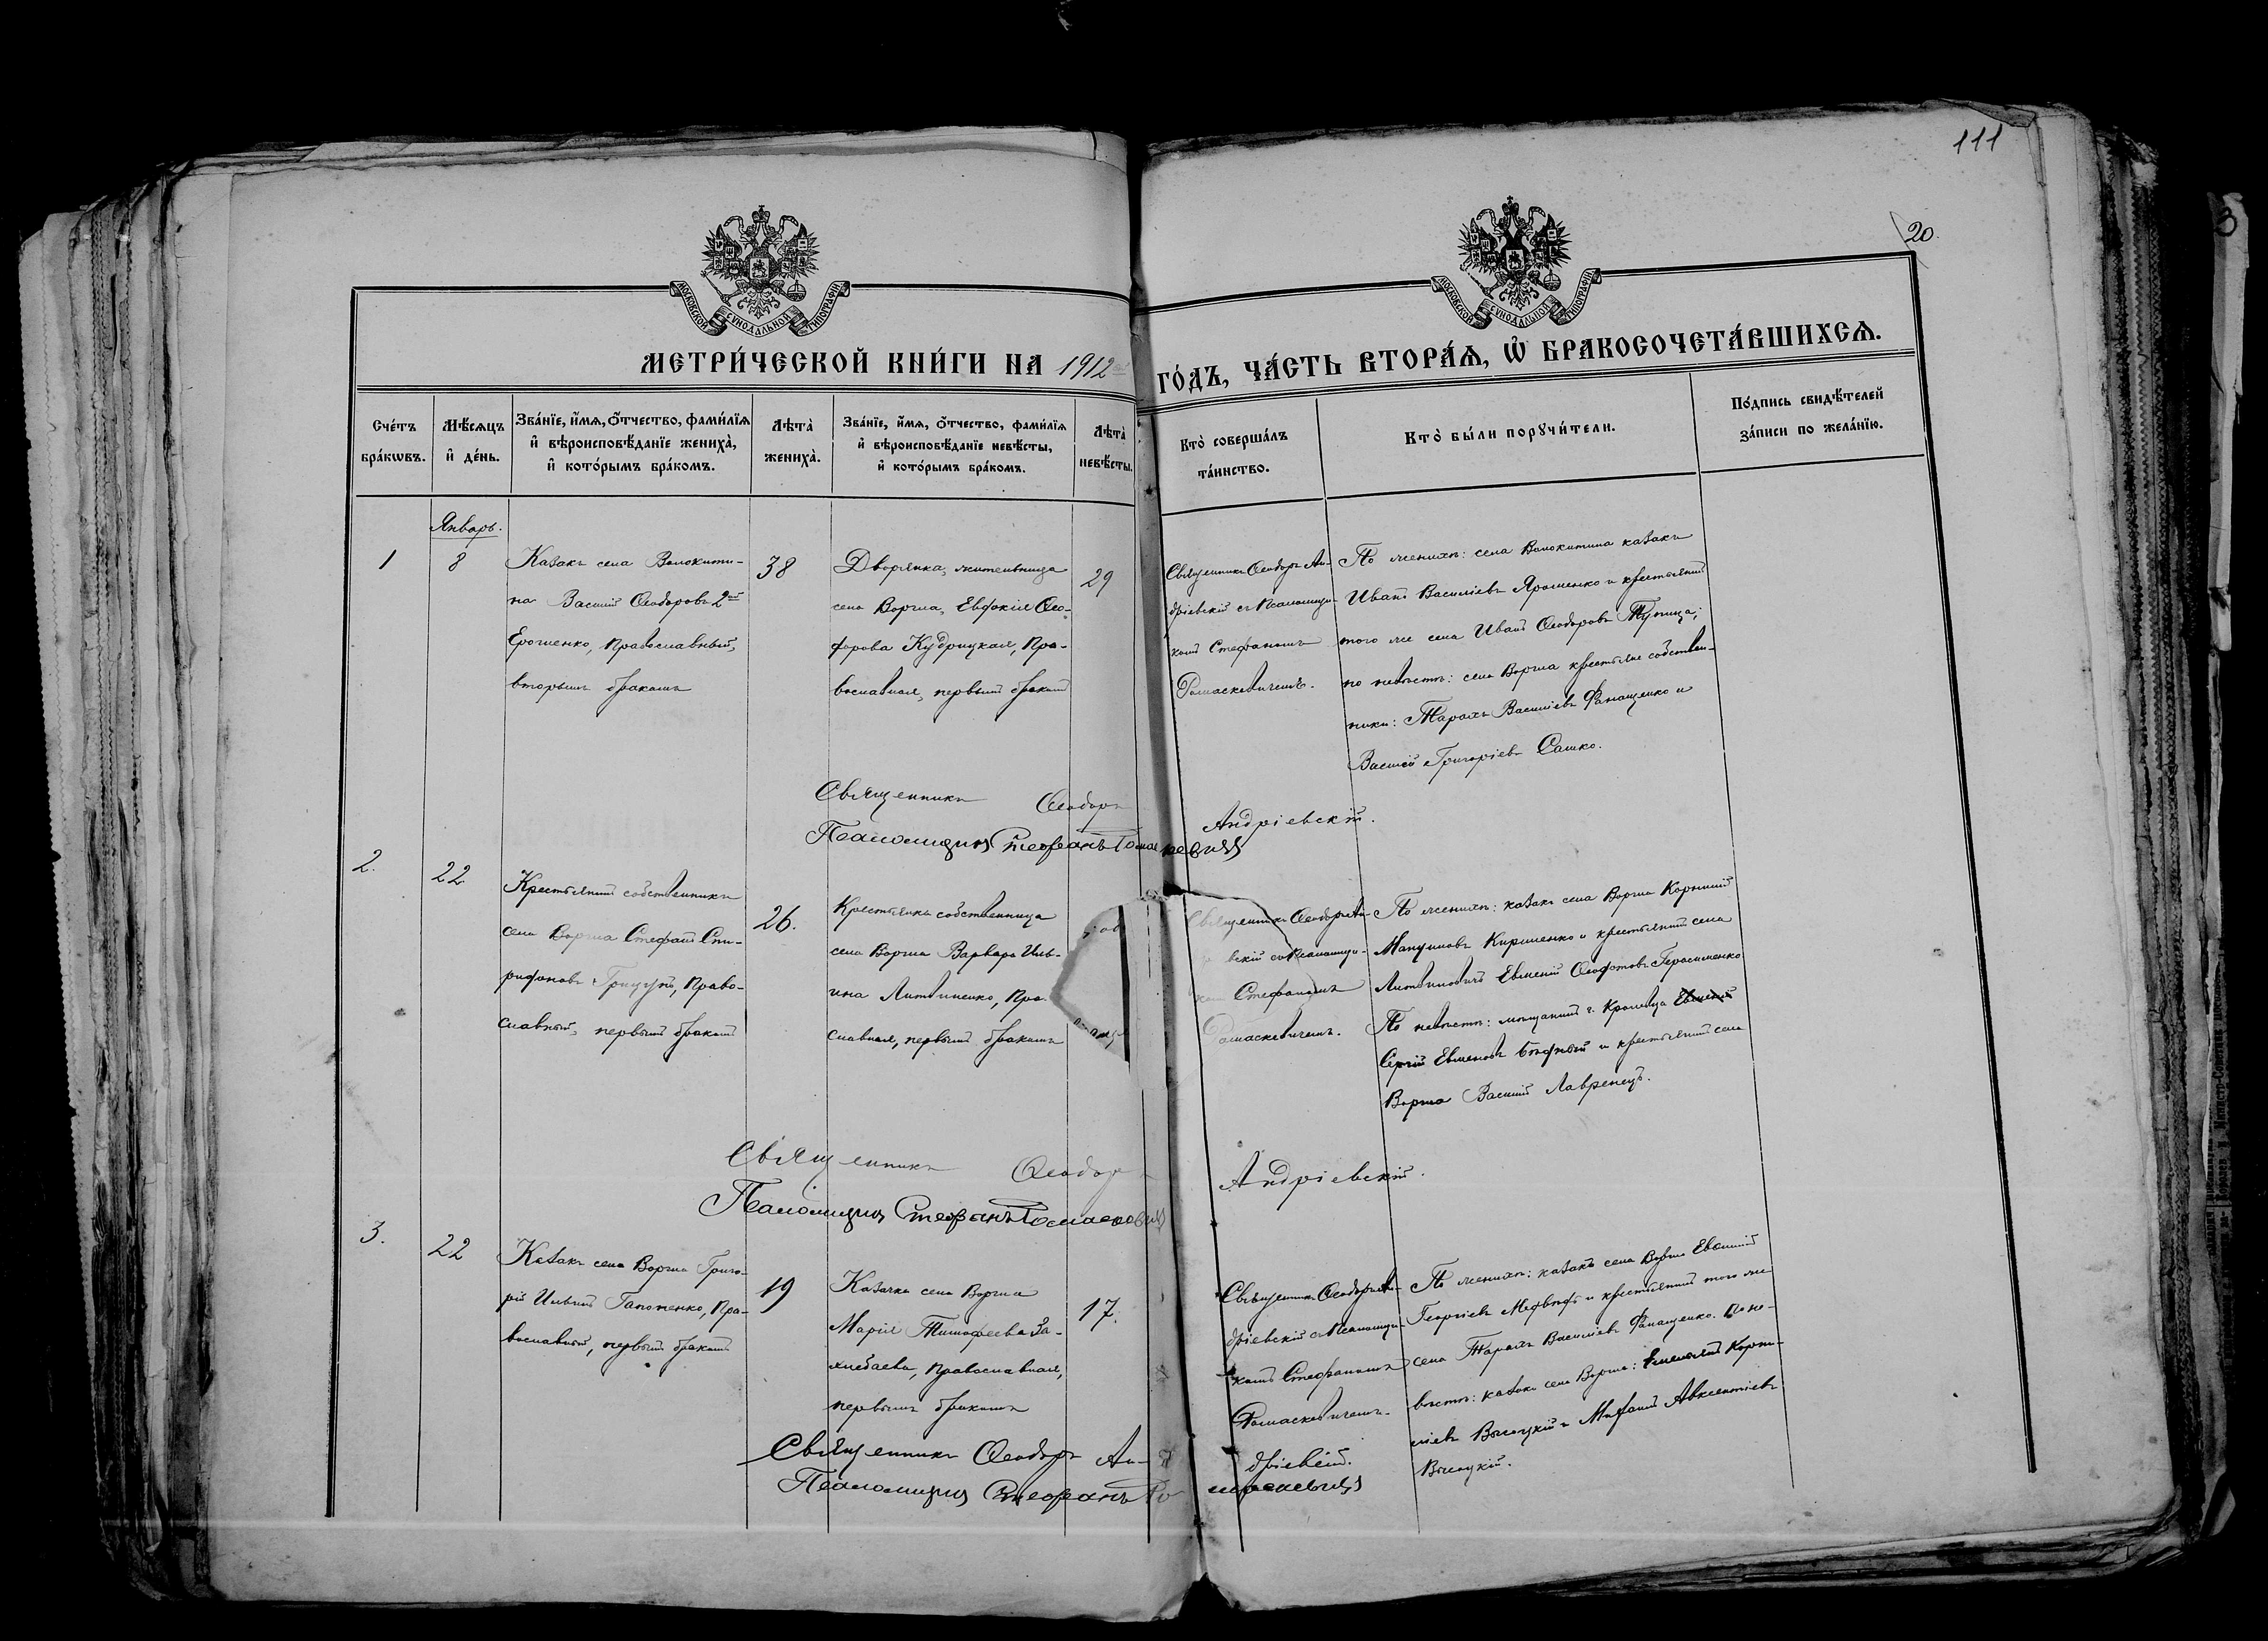 111
20.
МОСКОВСКОЙ СѴНОДАЛЬНОЙ ТИПОГРАФІИ
МОСКОВСКОЙ СѴНОДАЛЬНОЙ ТИПОГРАФІИ
МЕТРИ́ЧЕСКОЙ КНИ́ГИ НА 1912 ГО́ДЪ, ЧА́СТЬ ВТОРА́Ѧ, Ѡ҆ БРАКОСОЧЕТА́ВШИХСѦ.
Сче́тъ
бра́кѡвъ.
Мѣ́сѧцъ
и҆ де́нь.
Зва́нїе, и҆́мѧ, о҆́тчество, фами́лїѧ
и҆ вѣроисповѣ́данїе жениха̀,
и҆ кото́рымъ бра́комъ.
Лѣта̀
жениха̀.
Зва́нїе, и҆́мѧ, о҆́тчество, фами́лїѧ
и҆ вѣроисповѣ́данїе невѣ́сты,
и҆ кото́рымъ бра́комъ.
Лѣта̀
невѣ́сты.
Кто̀ соверша́лъ
та́инство.
Кто̀ бы́ли порꙋчи́тели.
По́дпись свидѣ́телей
за́писи по жела́нїю.
Январь.
1
8
Казакъ села Волокити-
на Василій Ѳеодоровъ 2ой
Ерошенко, православный,
вторымъ бракомъ
38
Дворянка, жительница
села Воргла, Евфокія Ѳео-
форова Кудрицкая, пра-
вославная, первымъ бракомъ
29
Священникъ Ѳеодоръ Ан-
дріевскій съ псаломщи-
комъ Стефаномъ
Ромаскевичемъ.
По женихѣ: села Волокитина казакъ
Иванъ Васильевъ Ярошенко и крестьянинъ
того же села Иванъ Ѳеодоровъ Тупица;
по невѣстѣ: села Воргла крестьяне собствен-
ники: Тарахъ Васильевъ Фанащенко и
Василій Григоріевъ Сашко.
Священникъ Ѳеодоръ Андріевскій.
Псаломщикъ Стефанъ Ромаскевичъ
2.
22
Крестьянинъ собственникъ
села Воргла Стефанъ Спи-
ридоновъ Грицунъ, право-
славный, первымъ бракомъ
26.
Крестьянка собственница
села Воргла Варвара Иль-
ина Литвиненко, пра-
славная, первымъ бракомъ
Священникъ Ѳеодоръ Ан-
вскій съ псаломщи-
комъ Стефаномъ
Ромаскевичемъ.
По женихѣ: казакъ села Воргла Корнилій
Кириленко и крестьянинъ села
Литвиновичъ Евменій Герасименко
По невѣстѣ: мѣщанинъ г. Кролевца
Сергій Евменовъ Бѣдный и крестьянинъ села
Воргла Василій Лавренецъ.
Священникъ Ѳеодоръ Андріевскій.
Псаломщикъ Стефанъ Ромаскевичъ
3.
22
Казакъ села Воргла Григо-
рій Ильинъ Гапоненко, пра-
вославный, первымъ бракомъ
19
Казачка села Воргла
Марія Тимофеева За-
хлебаева, православная,
первымъ бракомъ
17.
Священникъ Ѳеодоръ Ан-
дріевскій съ псаломщи-
комъ Стефаномъ
Ромаскевичемъ.
По женихѣ: казакъ села Воргла Евфимій
Георгіевъ Медвѣдь и крестьянинъ того же
села Тарахъ Васильевъ Фанащенко. По не-
вѣстѣ: казаки села Воргла: Емельянъ Корни-
ліевъ Высоцкій и Авксентіевъ
Высоцкій.
Священникъ Ѳеодоръ Андріевскій.
Псаломщикъ Стефанъ Ромаскевичъ